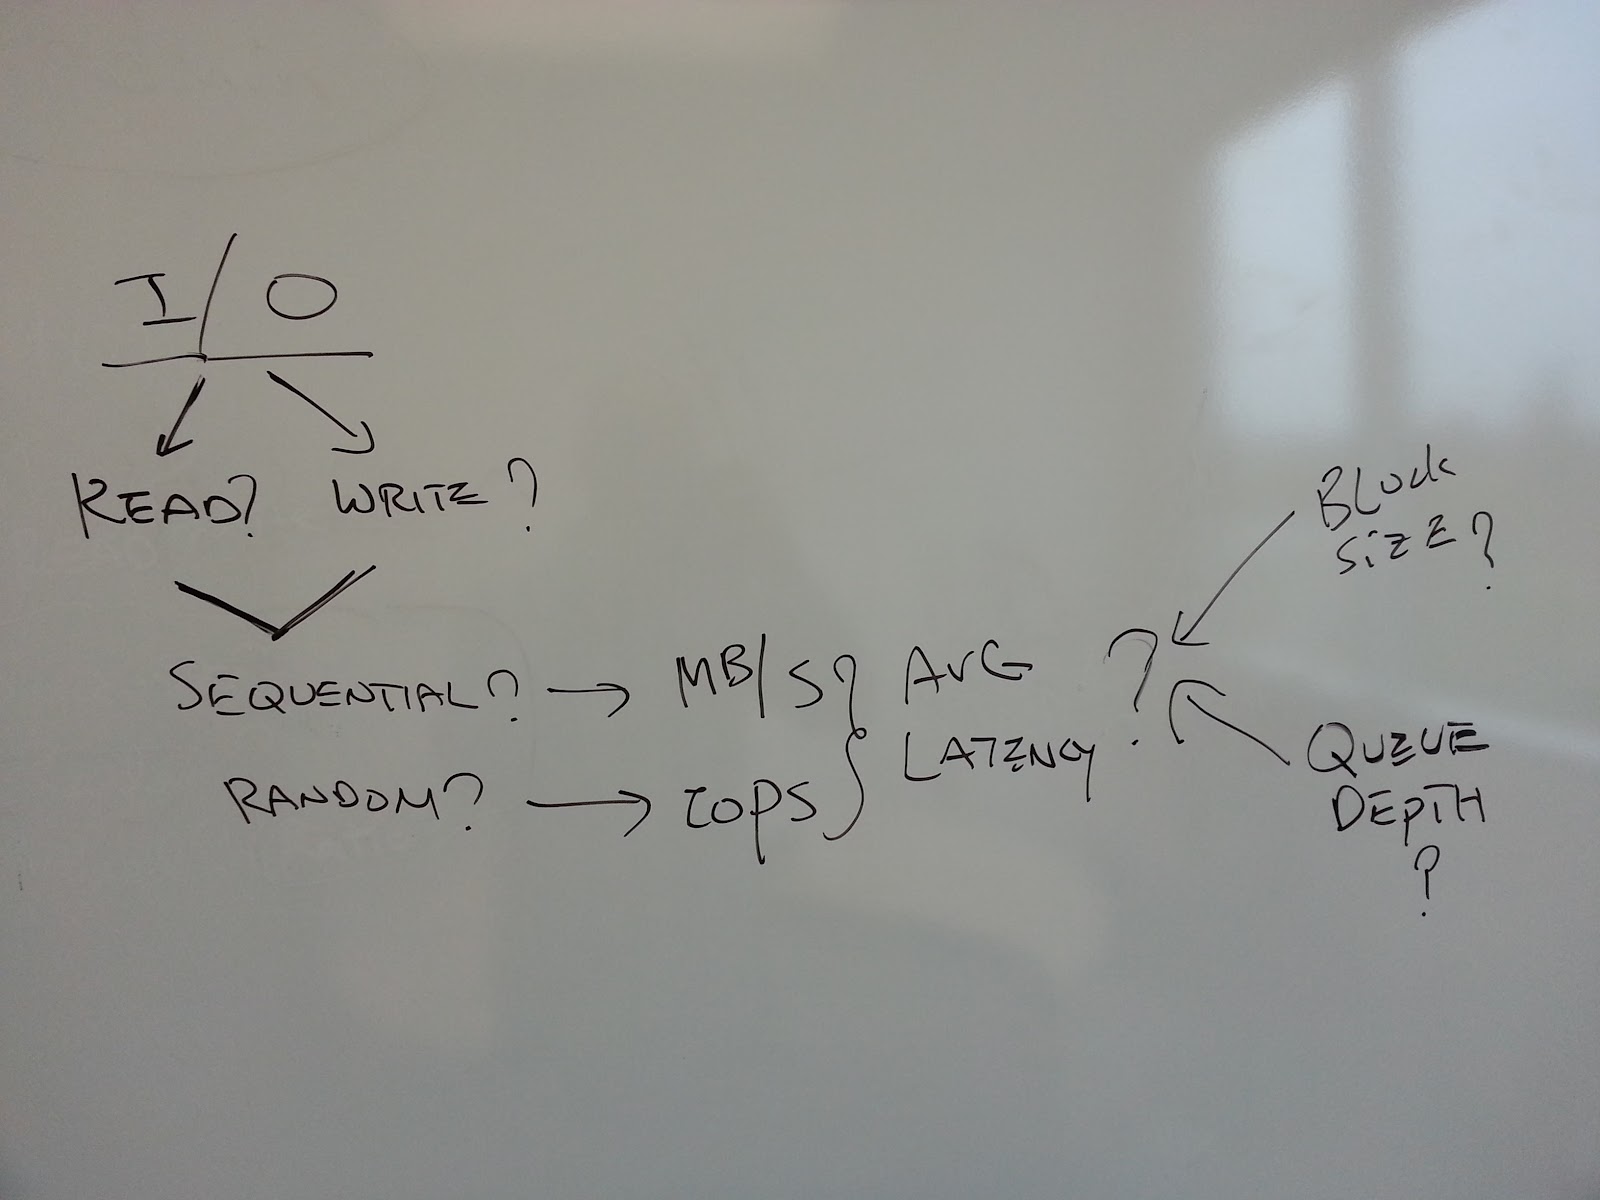 I/O
READ? WRITE?
SEQUENTIAL? → MB/S
RANDOM? → IOPS
AVG
LATENCY ?
BLOCK
SIZE?
QUEUE
DEPTH
?